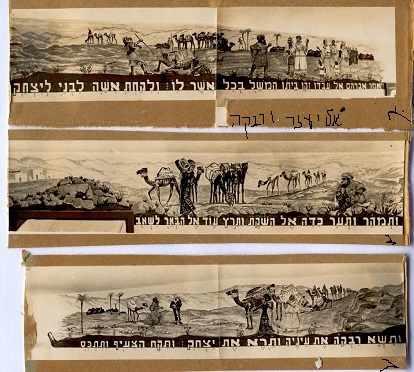 אמר אברהם אל עבדו זקן ביתו המשל בכל אשר לו: ולקחת אשה לבני ליצחק
אליעזר ורבקה
ותמהר ותער כדה אל השקת ותרץ עוד אל הבאר לשאב
ותשא רבקה את עיניה ותרא את יצחק: ותקח הצעיף ותתכס